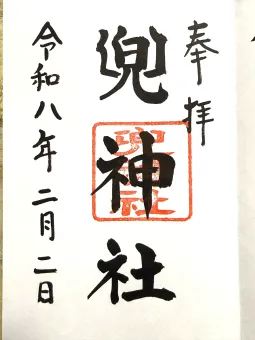 奉拝
兜神社
兜神社
令和八年二月二日